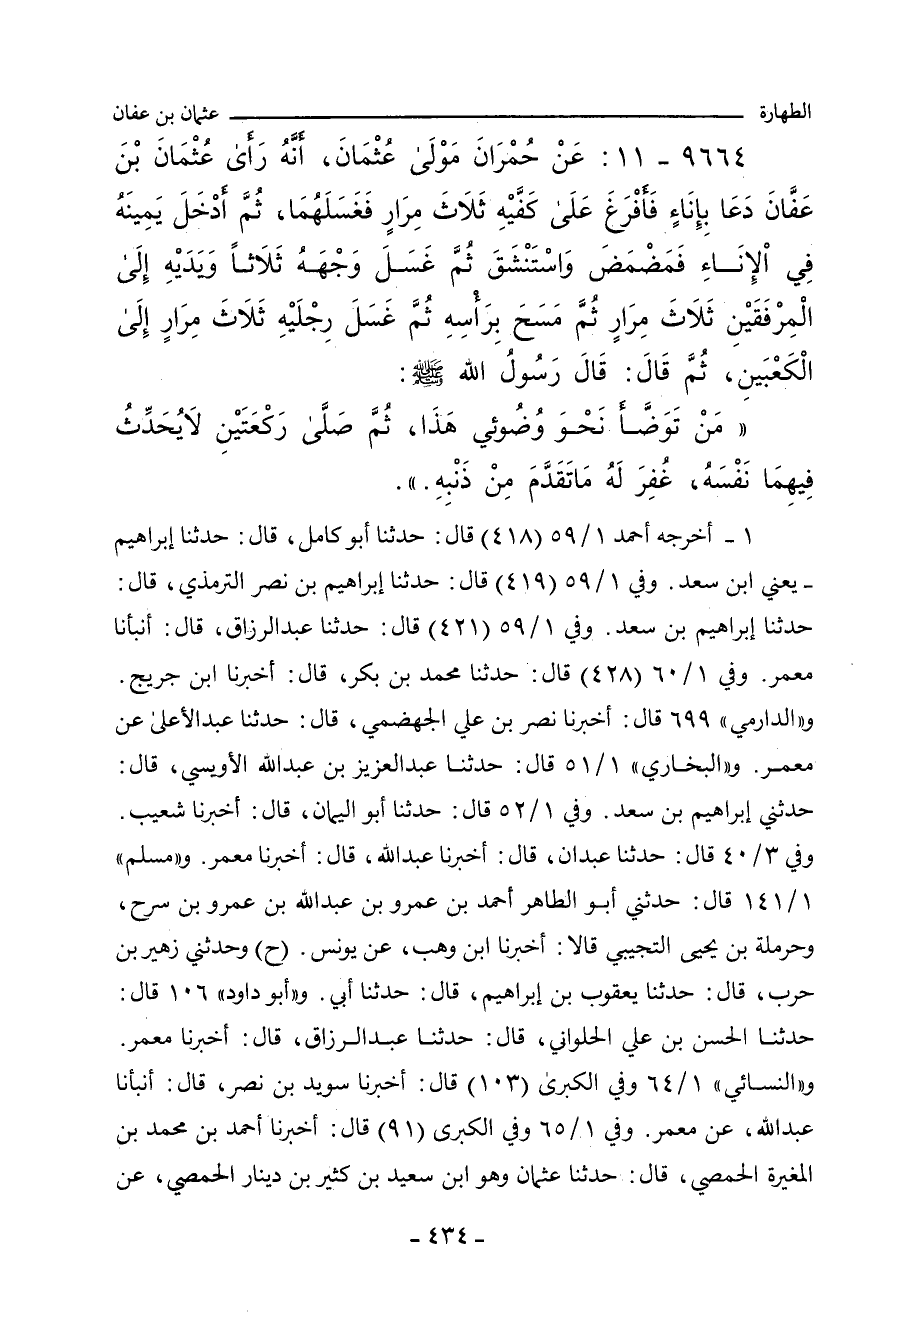 الطهارة ـــــــــــــــــــــ عثمان بن عفان
٩٦٦٤ - ١١ : عَنْ حُمْرَانَ مَوْلَىٰ عُثْمَانَ، أَنَّهُ رَأَىٰ عُثْمَانَ بْنَ
عَفَّانَ دَعَا بِإِنَاءٍ فَأَفْرَغَ عَلَىٰ كَفَّيْهِ ثَلَاثَ مِرَارٍ فَغَسَلَهُمَا، ثُمَّ أَدْخَلَ يَمِينَهُ
فِي اْلإِنَـاءِ فَمَضْمَضَ وَاسْتَنْشَقَ ثُمَّ غَسَـلَ وَجْهَـهُ ثَلَاثـاً وَيَدَيْهِ إِلَىٰ
الْمِرْفَقَيْنِ ثَلَاثَ مِرَارٍ ثُمَّ مَسَحَ بِرَأْسِهِ ثُمَّ غَسَلَ رِجْلَيْهِ ثَلَاثَ مِرَارٍ إِلَىٰ
الْكَعْبَيْنِ، ثُمَّ قَالَ: قَالَ رَسُولُ الله ﷺ :
« مَنْ تَوَضَّـأَ نَحْـوَ وُضُوئي هَذَا، ثُمَّ صَلَّىٰ رَكْعَتَيْنِ لَايُحَدِّثُ
فِيهِمَا نَفْسَهُ، غُفِرَ لَهُ مَاتَقَدَّمَ مِنْ ذَنْبِهِ. ».
١ - أخرجه أحمد ٥٩/١ (٤١٨) قال: حدثنا أبو كامل، قال: حدثنا إبراهيم
- يعني ابن سعد. وفي ٥٩/١ (٤١٩) قال: حدثنا إبراهيم بن نصر الترمذي، قال:
حدثنا إبراهيم بن سعد. وفي ٥٩/١ (٤٢١) قال: حدثنا عبدالرزاق، قال: أنبأنا
معمر. وفي ٦٠/١ (٤٢٨) قال: حدثنا محمد بن بكر، قال: أخبرنا ابن جريج.
و«الدارمي» ٦٩٩ قال: أخبرنا نصر بن علي الجهضمي، قال: حدثنا عبدالأعلىٰ عن
معمـر. و«البخـاري» ٥١/١ قال: حدثنـا عبدالعزيز بن عبدالله الأويسي، قال:
حدثني إبراهيم بن سعد. وفي ٥٢/١ قال: حدثنا أبو اليمان، قال: أخبرنا شعيب.
وفي ٤٠/٣ قال: حدثنا عبدان، قال: أخبرنا عبدالله، قال: أخبرنا معمر. و«مسلم»
١٤١/١ قال: حدثني أبـو الطاهر أحمد بن عمرو بن عبدالله بن عمرو بن سرح،
وحرملة بن يحيى التجيبي قالا: أخبرنا ابن وهب، عن يونس. (ح) وحدثني زهير بن
حرب، قال: حدثنا يعقوب بن إبراهيم، قال: حدثنا أبي. و«أبو داود» ١٠٦ قال:
حدثنـا الحسن بن علي الحلواني، قال: حدثنـا عبـدالـرزاق، قال: أخبرنا معمر.
و«النسـائي» ٦٤/١ وفي الكبرىٰ (١٠٣) قال: أخبرنا سويد بن نصر، قال: أنبأنا
عبدالله، عن معمر. وفي ٦٥/١ وفي الكبرى (٩١) قال: أخبرنا أحمد بن محمد بن
المغيرة الحمصي، قال: حدثنا عثمان وهو ابن سعيد بن كثير بن دينار الحمصي، عن
- ٤٣٤ -